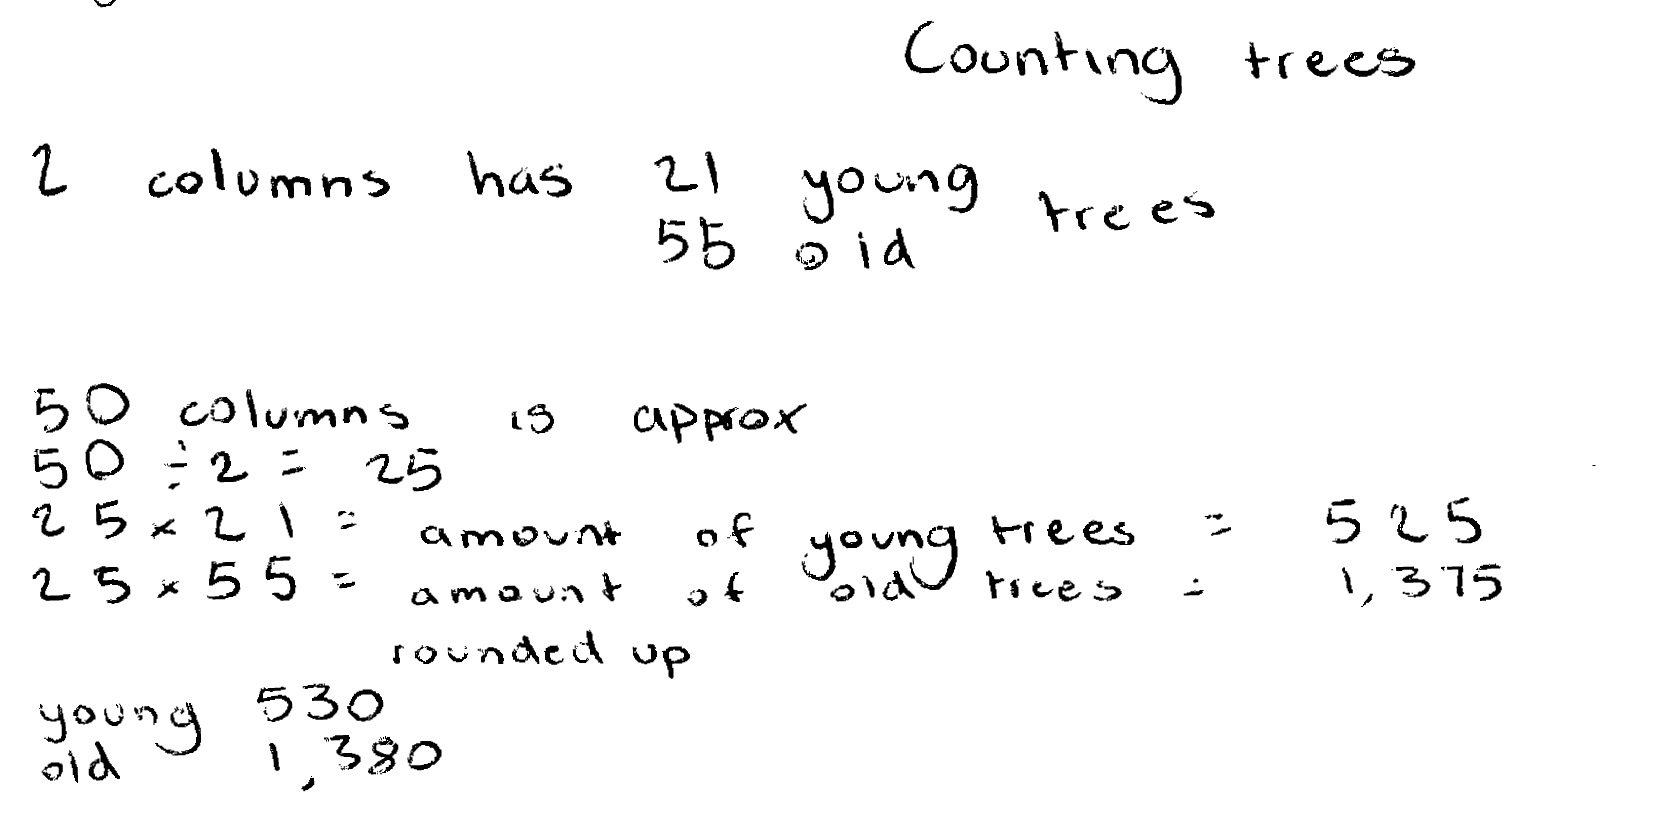 Counting trees
2 columns has 21 young trees
55 old
50 columns is approx
50 ÷ 2 = 25
25 × 21 = amount of young trees = 525
25 × 55 = amount of old trees = 1,375
rounded up
young 530
old 1,380